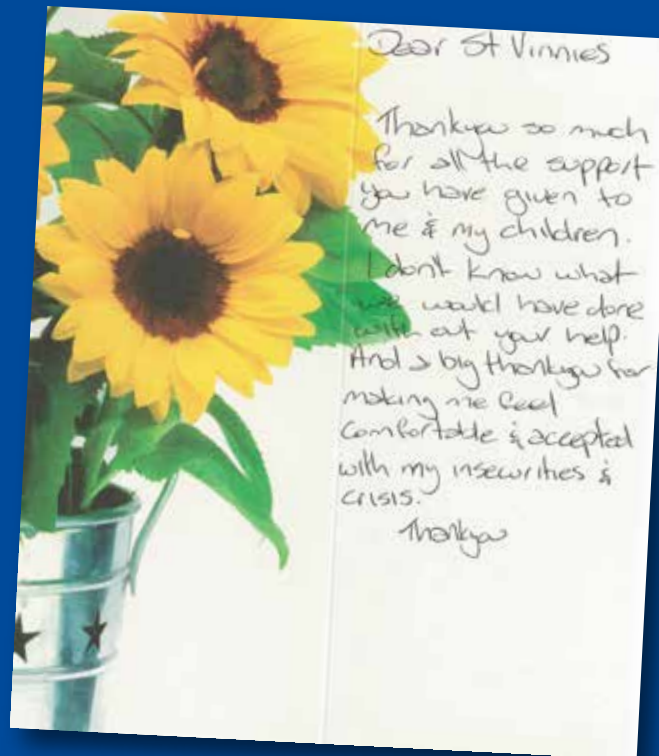 Dear St Vinnies
Thankyou so much
for all the support
you have given to
me & my children.
I don't know what
we would have done
with out your help.
And a big thankyou for
making me feel
comfortable & accepted
with my insecurities &
crisis.
Thankyou